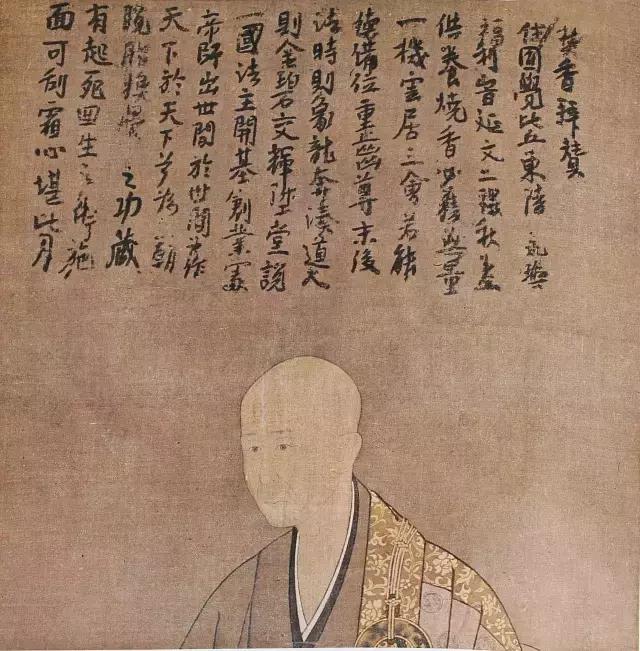 面可刮霜心堪比月
有起死回生之術施
脱胎換骨之功蔵
天下於天下兮為三朝
帝師出世間於世間兮作
一國法主開基創業處
則金碧交輝陞堂說
法時則象龍奔湊道大
德備位重齒尊末後
一機雲居三會若能
供養燒香必獲無量
福利旹延文二禩秋孟
住圓覺比丘東陵永璵
焚香拜賛